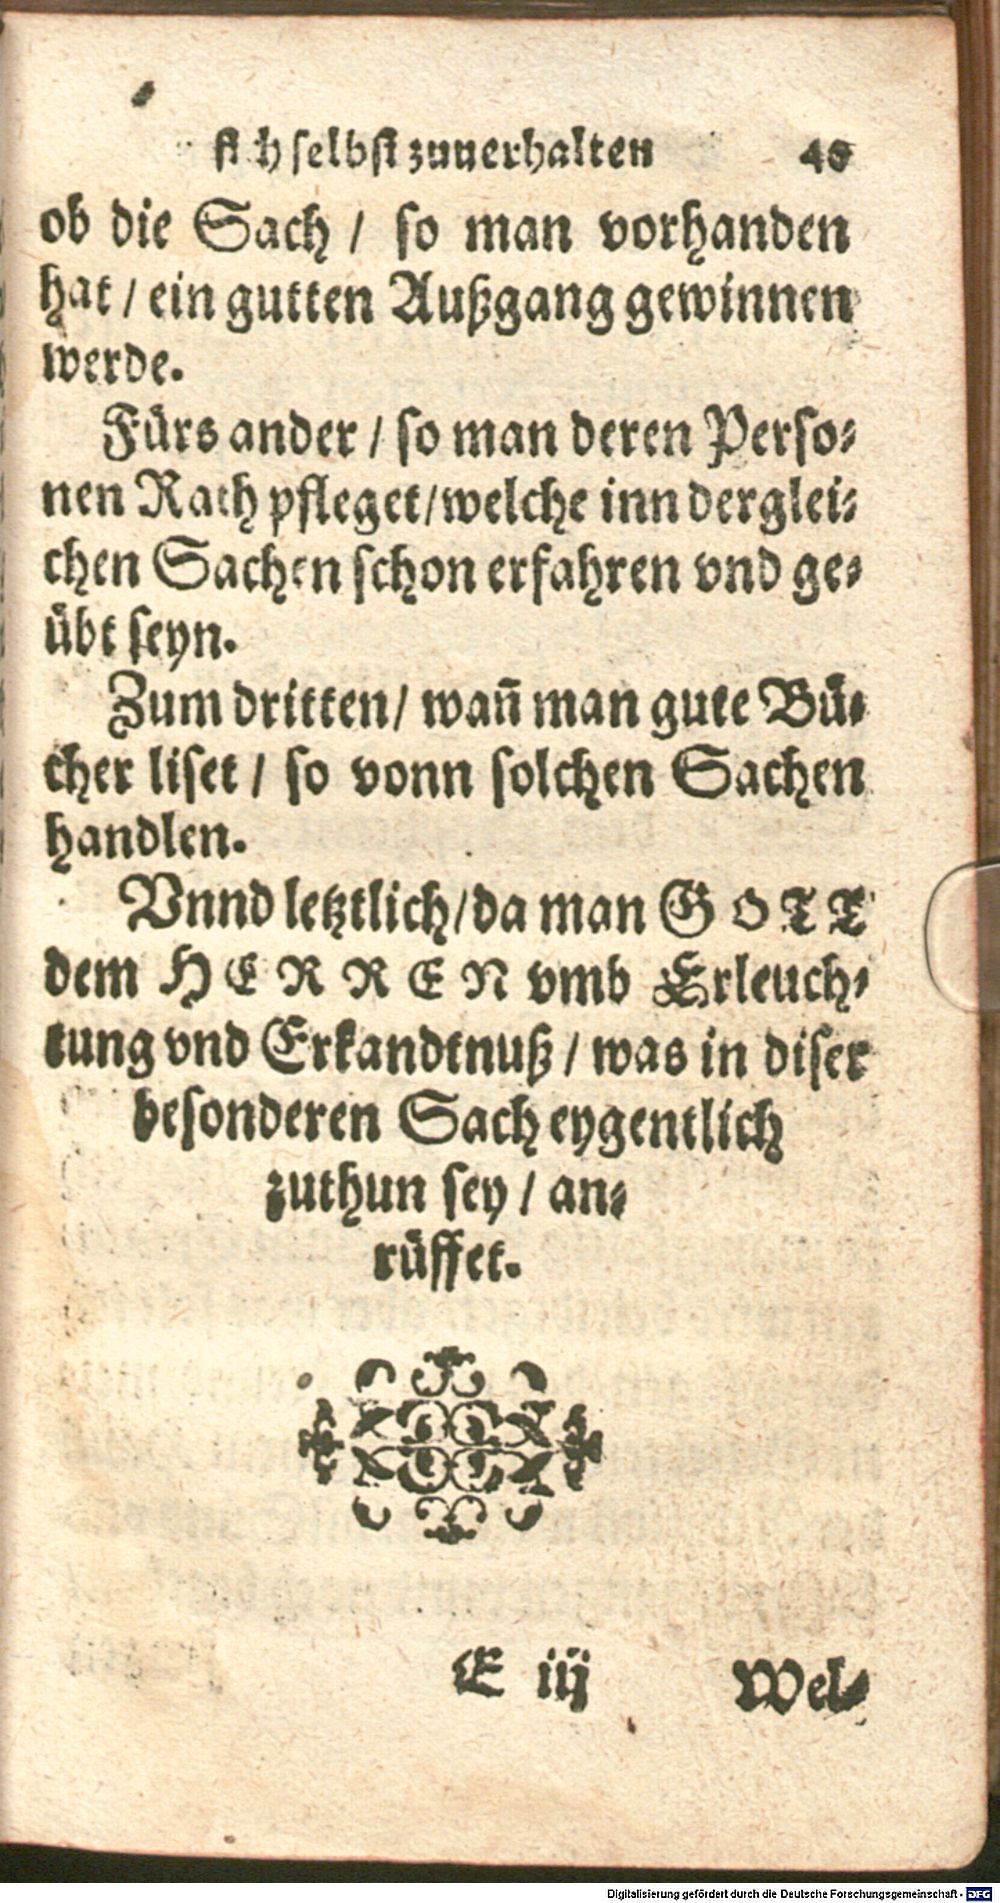 sich selbst zuuerhalten 40
ob die Sach / so man vorhanden
hat / ein gutten Außgang gewinnen
werde.
Fürs ander / so man deren Perso⸗
nen Rath pfleget / welche inn derglei⸗
chen Sachen schon erfahren vnd ge⸗
übt seyn.
Zum dritten / wañ man gute Bü⸗
cher liset / so vonn solchen Sachen
handlen.
Vnnd letztlich / da man GOTT
dem HERREN vmb Erleuch⸗
tung vnd Erkandtnuß / was in diser
besonderen Sach eygentlich
zuthun sey / an⸗
rüffet.
E iij Wel⸗
Digitalisierung gefördert durch die Deutsche Forschungsgemeinschaft - DFG